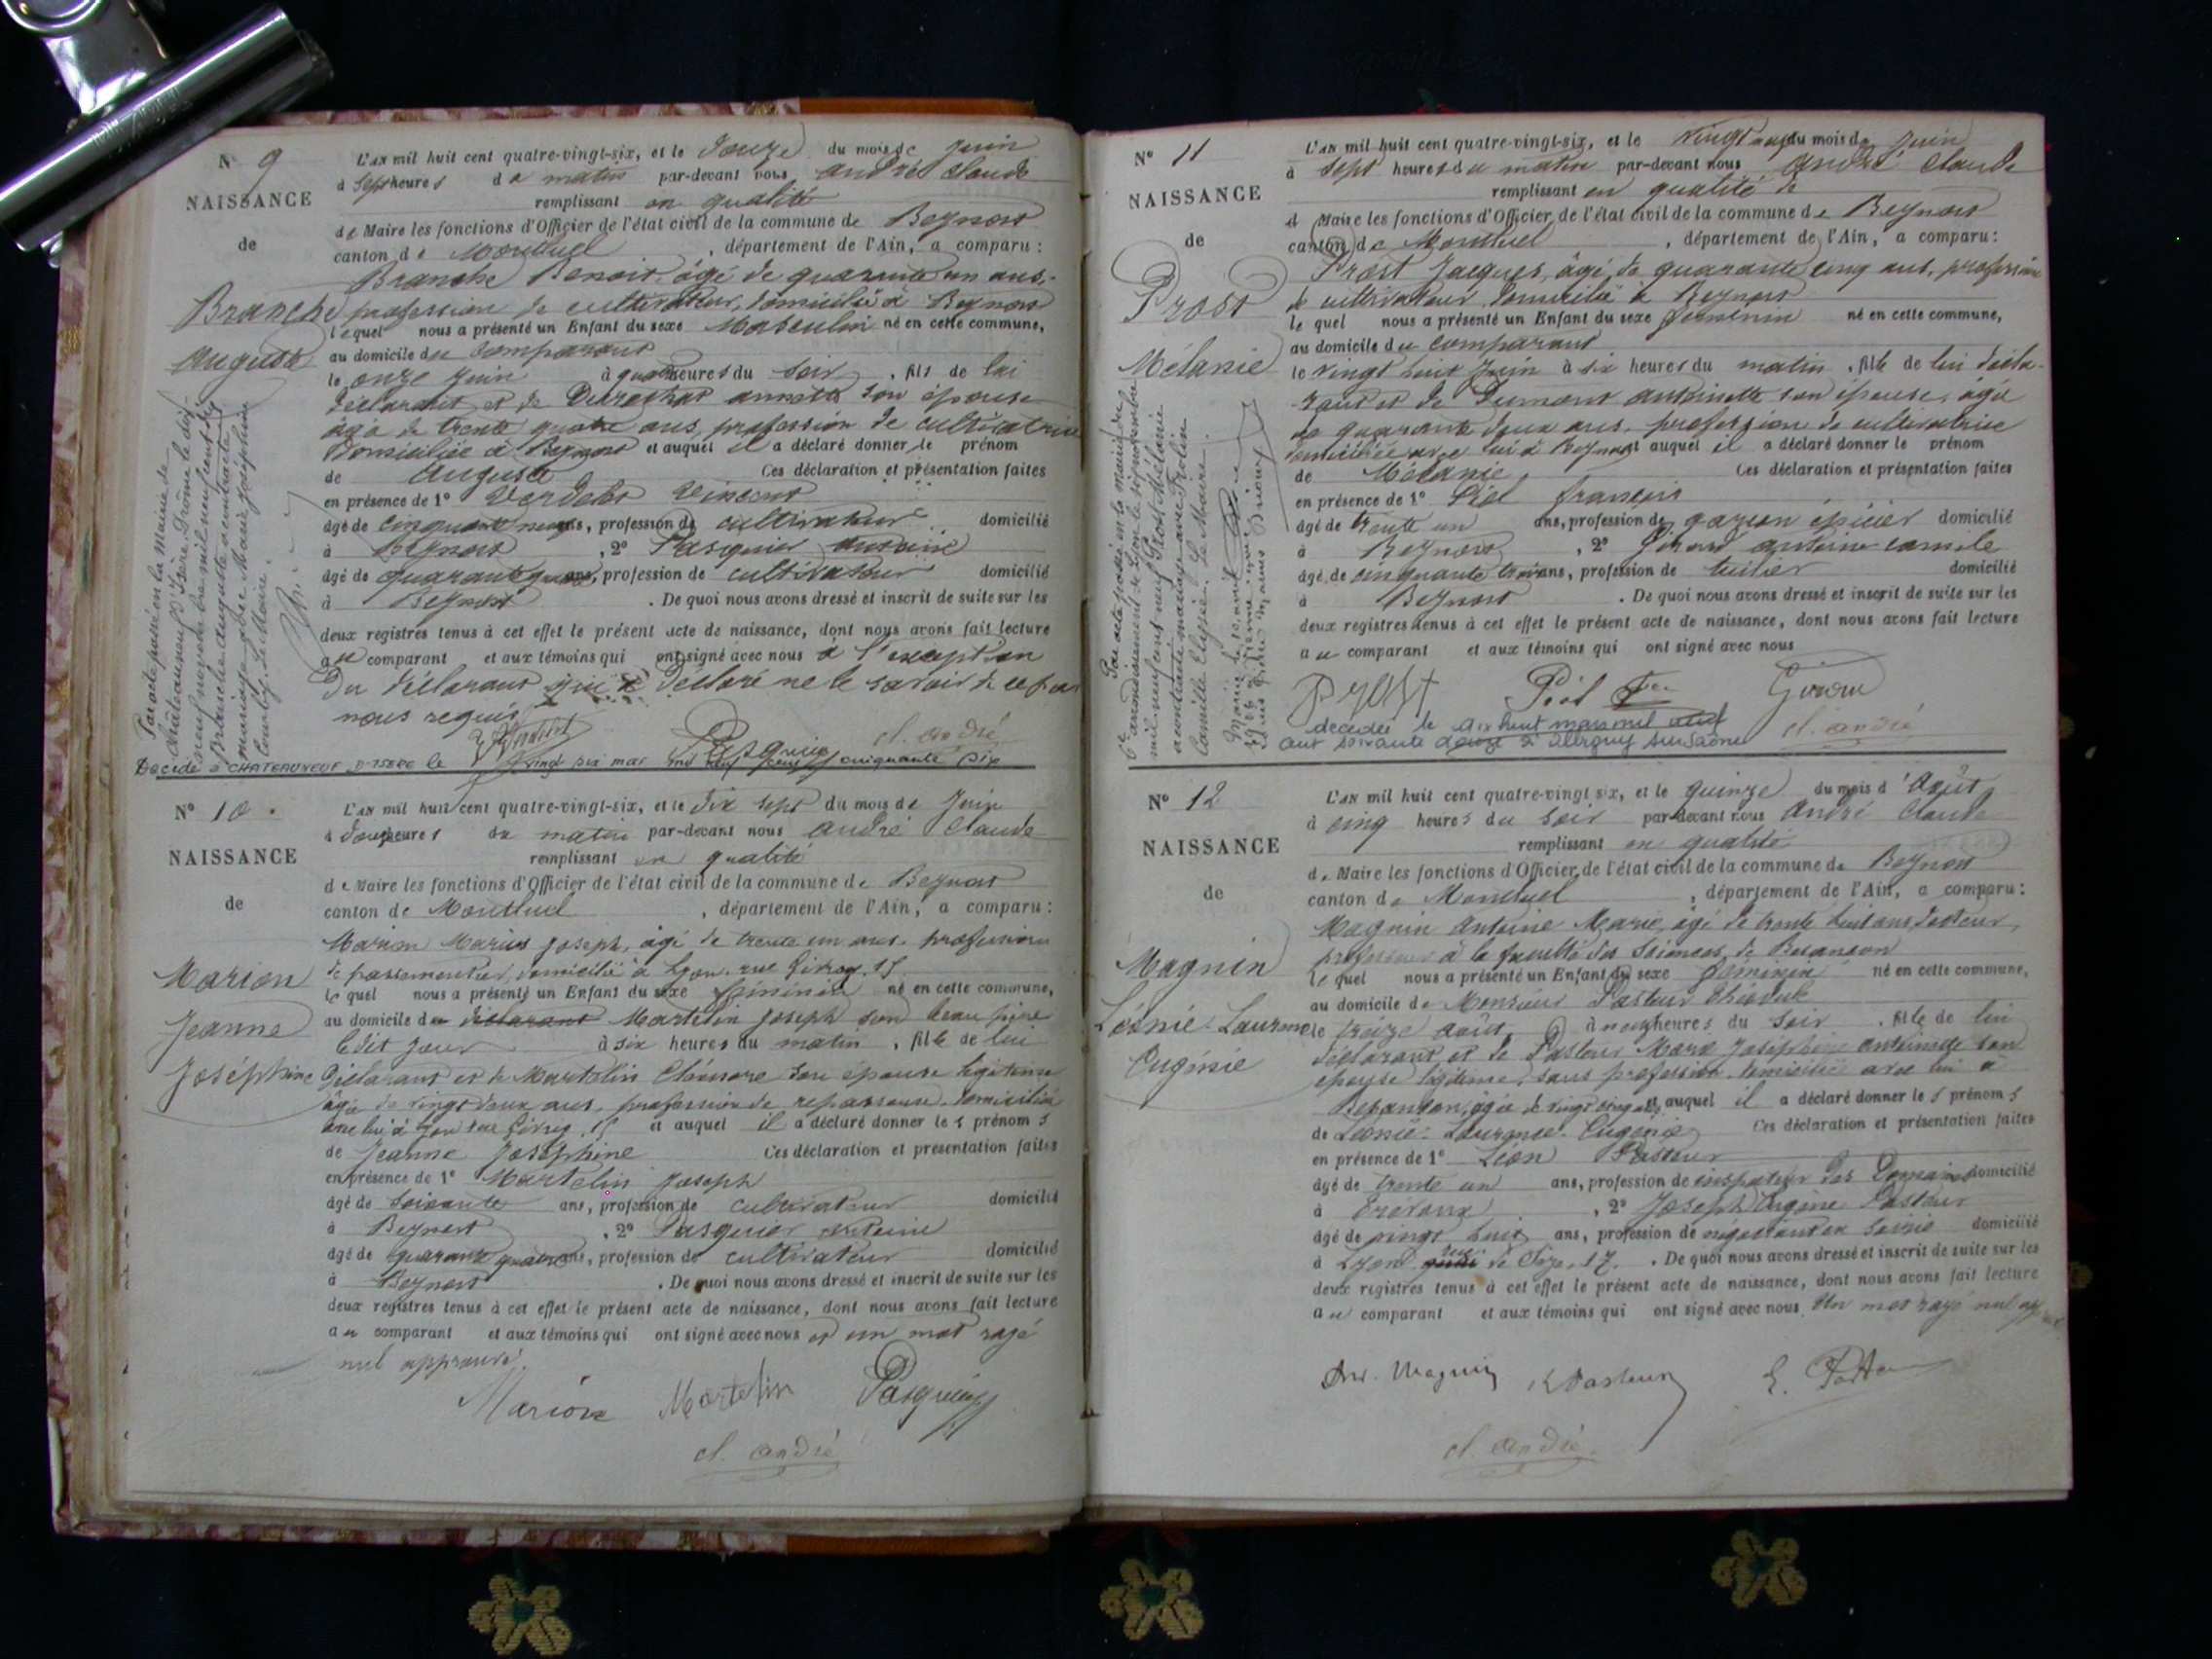 N° 9
NAISSANCE
de
Branche
Auguste
L'AN mil huit cent quatre-vingt-six, et le Douze du mois de Juin
à sept heures du matin par-devant nous André Claude
remplissant en qualité
de Maire les fonctions d'Officier de l'état civil de la commune de Beynost
canton de Montluel, département de l'Ain, a comparu:
Branche Benoit, âgé de quarante un ans,
profession de cultivateur, domicilié à Beynost
lequel nous a présenté un Enfant du sexe Masculin né en cette commune,
au domicile du comparant
le onze Juin à quatre heures du soir, fils de lui
déclarant et de annette son épouse
âgée de trente quatre ans, profession de cultivatrice
Domiciliée à Beynost et auquel il a déclaré donner le prénom
de Auguste Ces déclaration et présentation faites
en présence de 1° Vincent
âgé de cinquante ans, profession de cultivateur domicilié
à Beynost, 2° Pasquier Antoine
âgé de quarante quatre ans, profession de cultivateur domicilié
à Beynost. De quoi nous avons dressé et inscrit de suite sur les
deux registres tenus à cet effet le présent acte de naissance, dont nous avons fait lecture
au comparant et aux témoins qui ont signé avec nous à l'exception
Du déclarant qui a déclaré ne le savoir de ce par
nous requis
Pasquier
cl. andré
Par acte passé en la mairie de
Châteauneuf d'Isère, Drôme le dix
neuf novembre mil neuf cent dix
Branche Auguste a contracté
mariage avec Marie Joséphine
Courby. Le Maire.
Décédé à CHATEAUNEUF D'ISERE le vingt six mai mil neuf cent cinquante six
N° 10
NAISSANCE
de
Marion
Jeanne
Joséphine
L'AN mil huit cent quatre-vingt-six, et le Dix sept du mois de Juin
à Douze heures du matin par-devant nous André Claude
remplissant en qualité
de Maire les fonctions d'Officier de l'état civil de la commune de Beynost
canton de Montluel, département de l'Ain, a comparu:
Marion Marius Joseph, âgé de trente un ans profession
de passementier, domicilié à Lyon, rue 15
lequel nous a présenté un Enfant du sexe féminin né en cette commune,
au domicile du déclarant Martelin Joseph son beau père
Ledit jour à six heures du matin, fille de lui
Déclarant et de Martelin Eléonore son épouse légitime
âgée de vingt deux ans, profession de repasseuse, domiciliée
avec lui à Lyon rue 15 et auquel il a déclaré donner les prénoms
de Jeanne Joséphine Ces déclaration et présentation faites
en présence de 1° Martelin Joseph
âgé de soixante ans, profession de cultivateur domicilié
à Beynost, 2° Pasquier Antoine
âgé de quarante quatre ans, profession de cultivateur domicilié
à Beynost. De quoi nous avons dressé et inscrit de suite sur les
deux registres tenus à cet effet le présent acte de naissance, dont nous avons fait lecture
au comparant et aux témoins qui ont signé avec nous et un mot rayé
nul approuvé.
Marion Martelin Pasquier
cl. andré
N° 11
NAISSANCE
de
Prost
Mélanie
L'AN mil huit cent quatre-vingt-six, et le Vingt neuf du mois de Juin
à sept heures du matin par-devant nous André Claude
remplissant en qualité de
d Maire les fonctions d'Officier de l'état civil de la commune de Beynost
canton de Montluel, département de l'Ain, a comparu:
Prost Jacques, âgé de quarante cinq ans, profession
de cultivateur domicilié à Beynost
lequel nous a présenté un Enfant du sexe féminin né en cette commune,
au domicile du comparant
le vingt huit Juin à six heures du matin, fille de lui décla-
rant et de Dumont Antoinette son épouse, âgée
de quarante deux ans, profession de cultivatrice
domiciliée avec lui à Beynost et auquel il a déclaré donner le prénom
de Mélanie Ces déclaration et présentation faites
en présence de 1° Piol françois
âgé de trente un ans, profession de garçon épicier domicilié
à Beynost, 2° Giroud antoine camile
âgé de cinquante trois ans, profession de tuilier domicilié
à Beynost. De quoi nous avons dressé et inscrit de suite sur les
deux registres tenus à cet effet le présent acte de naissance, dont nous avons fait lecture
au comparant et aux témoins qui ont signé avec nous
Prost Piol Giroud
cl. andré
décédée le dix huit mars mil neuf
cent soixante douze à Albigny sur Saône
Par acte passé en la mairie du
6e arrondissement de Lyon le six novembre
mil neuf cent neuf Prost Mélanie
a contracté mariage avec
Camille Le Maire.
N° 12
NAISSANCE
de
Magnin
Léonie Laurence
Eugénie
L'AN mil huit cent quatre-vingt six, et le quinze du mois d'Août
à cinq heures du soir par-devant nous André Claude
remplissant en qualité
de Maire les fonctions d'Officier de l'état civil de la commune de Beynost
canton de Montluel, département de l'Ain, a comparu:
Magnin Antoine Marie, âgé de trente huit ans, docteur,
professeur à la faculté des Sciences de Besançon
lequel nous a présenté un Enfant du sexe féminin né en cette commune,
au domicile de Monsieur Pasteur
le treize août, à neuf heures du soir, fille de lui
déclarant et de Pasteur Marie Joséphine antoinette son
épouse légitime, sans profession domiciliée avec lui à
Besançon, âgée de vingt cinq ans et auquel il a déclaré donner les prénoms
de Léonie. Laurence. Eugénie Ces déclaration et présentation faites
en présence de 1° Léon Pasteur
âgé de trente un ans, profession de inspecteur des Domaines domicilié
à Trévoux, 2° Joseph Eugène Pasteur
âgé de vingt huit ans, profession de négociant en soierie domicilié
à Lyon rue de Sèze, 17. De quoi nous avons dressé et inscrit de suite sur les
deux registres tenus à cet effet le présent acte de naissance, dont nous avons fait lecture
au comparant et aux témoins qui ont signé avec nous. Un mot rayé nul
Ant. Magnin L Pasteur E. Pasteur
cl. andré.